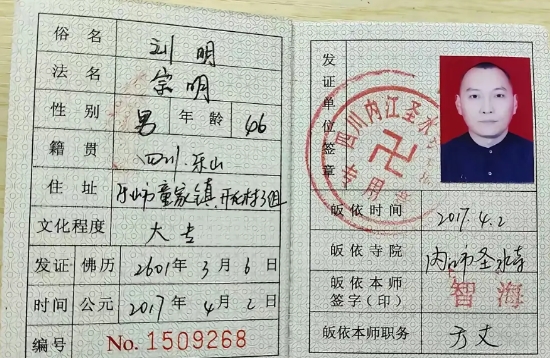 俗名 刘明
法名 宗明
性别 男 年龄 46
籍贯 四川.乐山
住址 乐山市童家镇.开花村3组
文化程度 大专
发证 佛历 2601年3月6日
时间 公元 2017年4月2日
编号 No. 1509268
发证单位签章
四川内江圣水
专用章
皈依时间 2017.4.2
皈依寺院 内江市圣水寺
皈依本师签字(印) 智海
皈依本师职务 方丈